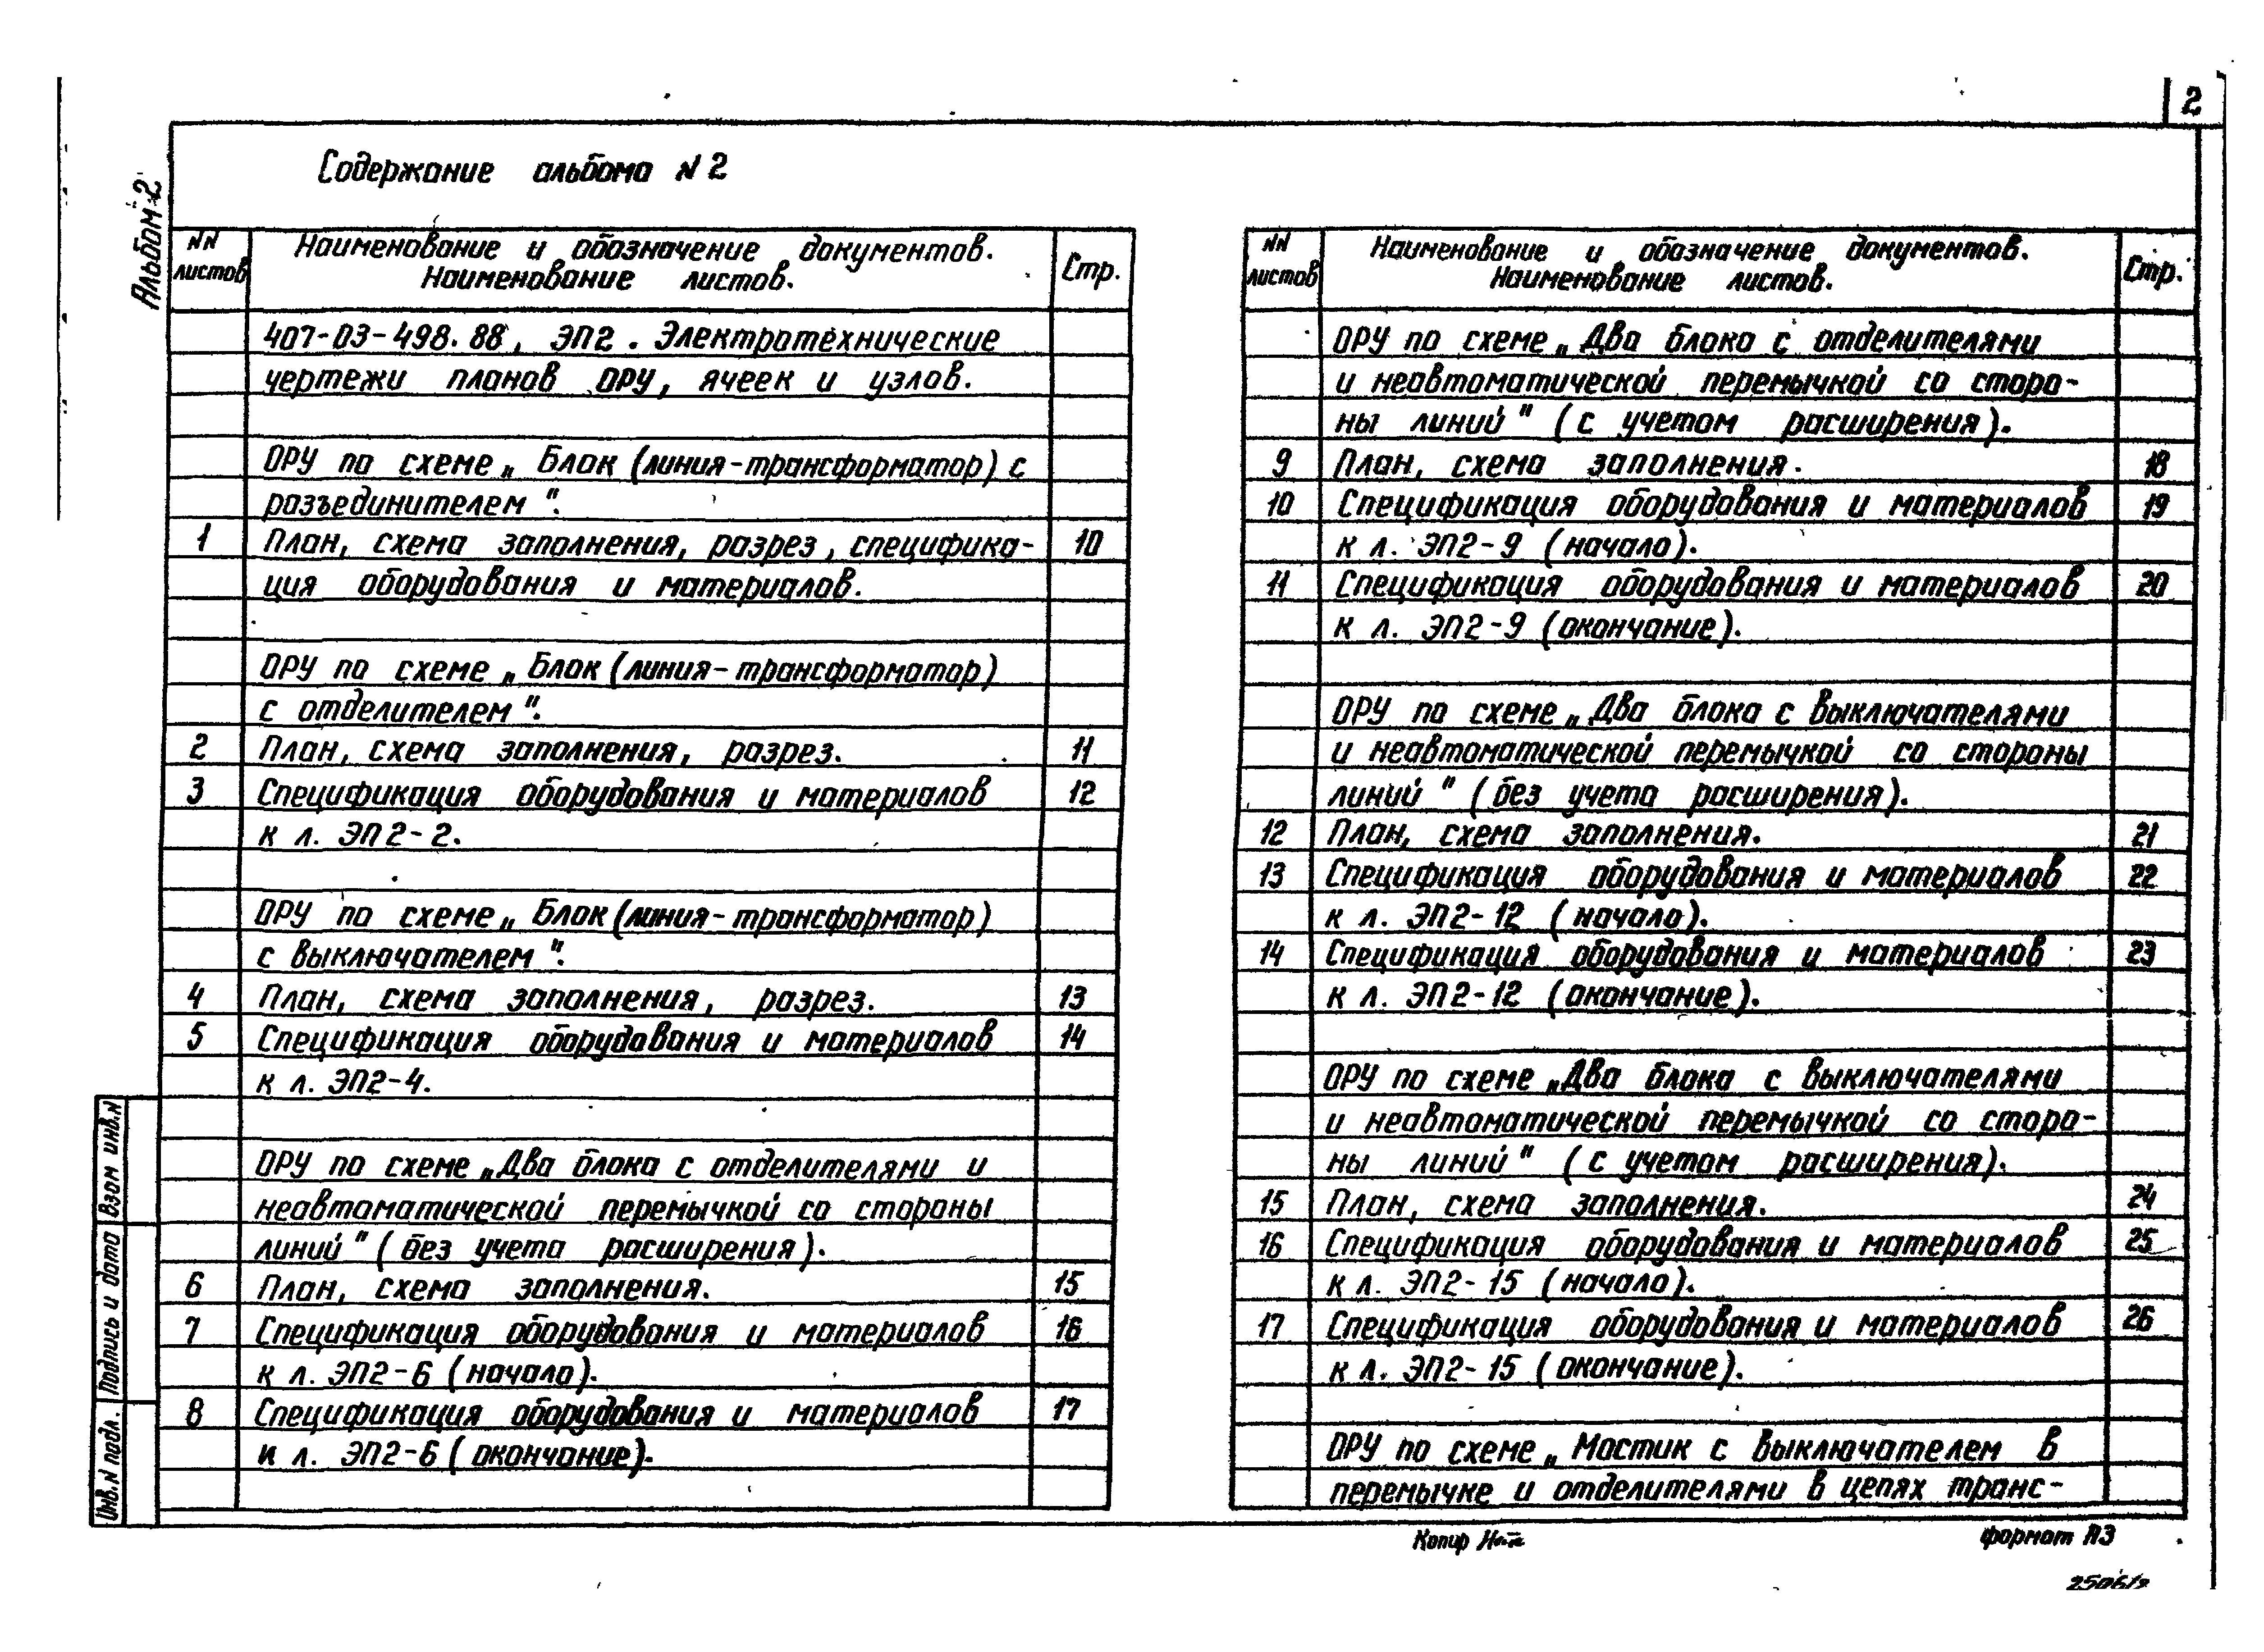 2
Содержание альбома N 2
Альбом 2
NN листов
Наименование и обозначение документов.
Наименование листов.
Стр.
407-03-498.88, ЭП2. Электротехнические
чертежи планов ОРУ, ячеек и узлов.
ОРУ по схеме „Блок (линия-трансформатор) с
разъединителем".
1 План, схема заполнения, разрез, специфика- 10
ция оборудования и материалов.
ОРУ по схеме „Блок (линия-трансформатор)
с отделителем".
2 План, схема заполнения, разрез. 11
3 Спецификация оборудования и материалов 12
к л. ЭП2-2.
ОРУ по схеме „Блок (линия-трансформатор)
с выключателем".
4 План, схема заполнения, разрез. 13
5 Спецификация оборудования и материалов 14
к л. ЭП2-4.
ОРУ по схеме „Два блока с отделителями и
неавтоматической перемычкой со стороны
линий" (без учета расширения).
6 План, схема заполнения. 15
7 Спецификация оборудования и материалов 16
к л. ЭП2-6 (начало).
8 Спецификация оборудования и материалов 17
к л. ЭП2-6 (окончание).
NN листов
Наименование и обозначение документов.
Наименование листов.
Стр.
ОРУ по схеме „Два блока с отделителями
и неавтоматической перемычкой со сторо-
ны линий" (с учетом расширения).
9 План, схема заполнения. 18
10 Спецификация оборудования и материалов 19
к л. ЭП2-9 (начало).
11 Спецификация оборудования и материалов 20
к л. ЭП2-9 (окончание).
ОРУ по схеме „Два блока с выключателями
и неавтоматической перемычкой со стороны
линий" (без учета расширения).
12 План, схема заполнения. 21
13 Спецификация оборудования и материалов 22
к л. ЭП2-12 (начало).
14 Спецификация оборудования и материалов 23
к л. ЭП2-12 (окончание).
ОРУ по схеме „Два блока с выключателями
и неавтоматической перемычкой со сторо-
ны линий" (с учетом расширения).
15 План, схема заполнения. 24
16 Спецификация оборудования и материалов 25
к л. ЭП2-15 (начало).
17 Спецификация оборудования и материалов 26
к л. ЭП2-15 (окончание).
ОРУ по схеме „Мостик с выключателем в
перемычке и отделителями в цепях транс-
Взам инв.N
Подпись и дата
Инв.N подл.
Копир
формат А3